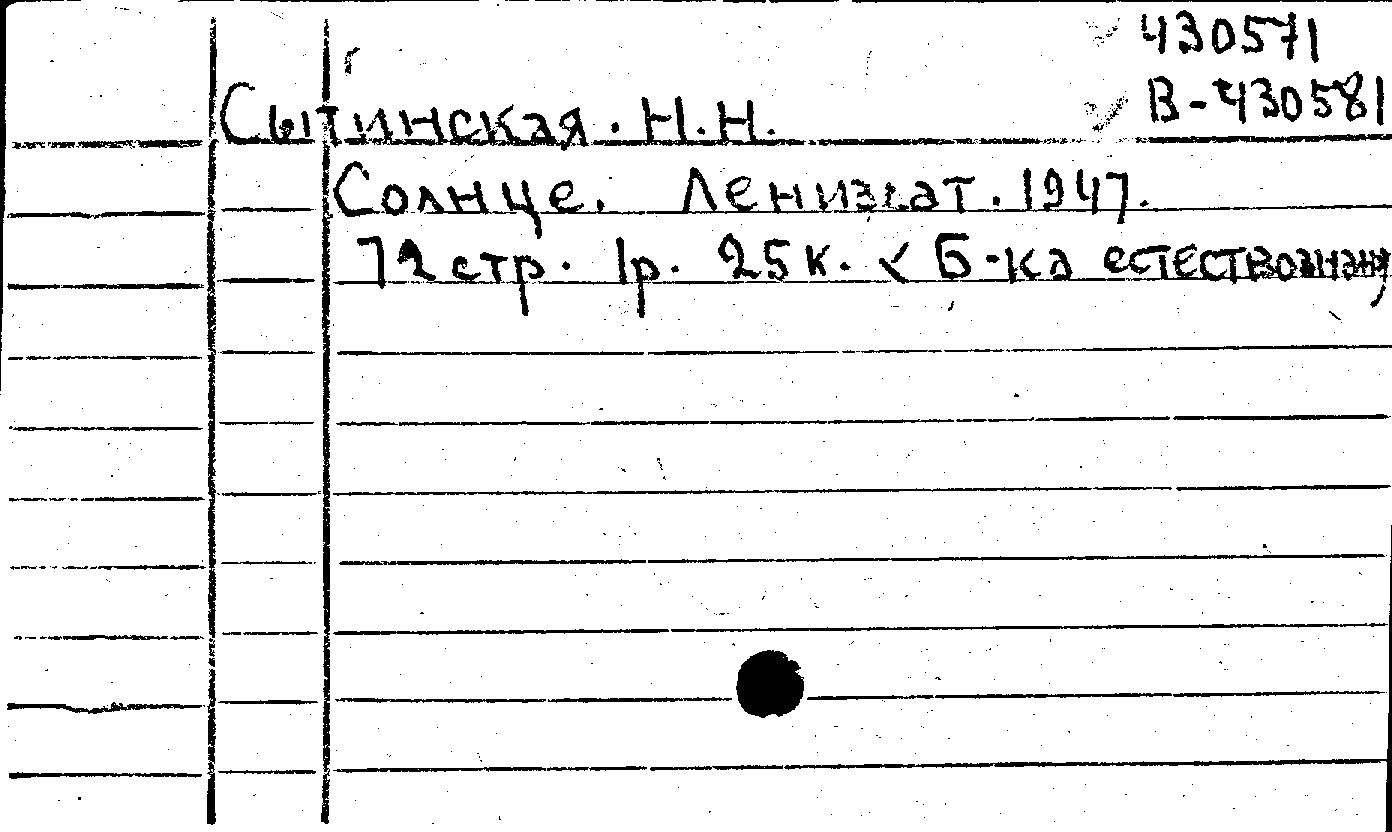 430571
В-430581
Сытинская. Н.Н.
Солнце. Лениздат. 1947.
72 стр. 1р. 25к. < Б-ка естествознан